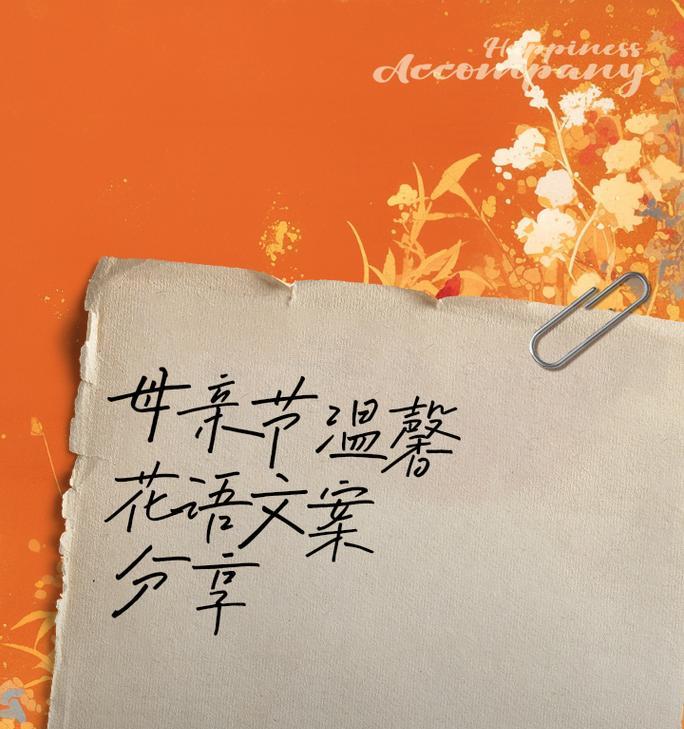 Happiness
Accompany
母亲节温馨
花语文案
分享